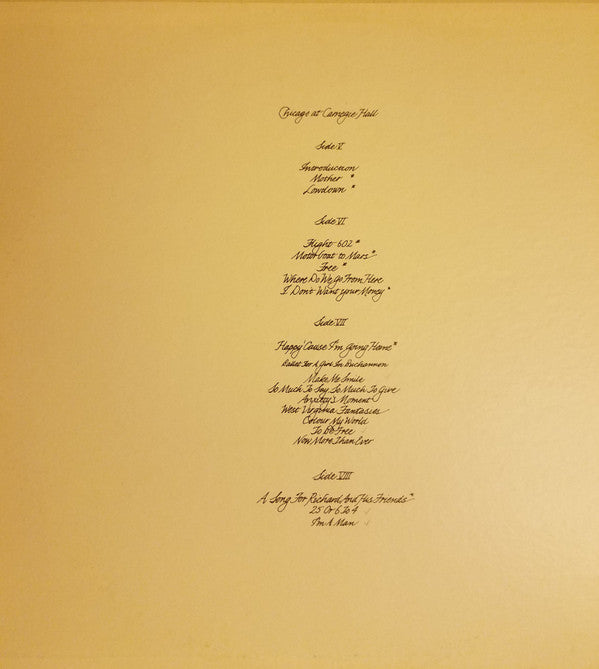 Chicago at Carnegie Hall
Side V
Introduction
Mother *
Lowdown *
Side VI
Flight 602 *
Motorboat to Mars *
Free *
Where Do We Go From Here
I Don't Want your Money *
Side VII
Happy 'Cause I'm going Home *
Ballet For A Girl In Buchannon
Make Me Smile
So Much To Say, So Much To Give
Anxiety's Moment
West Virginia Fantasies
Colour My World
To Be Free
Now More Than Ever
Side VIII
A Song For Richard And His Friends *
25 Or 6 To 4
I'm A Man